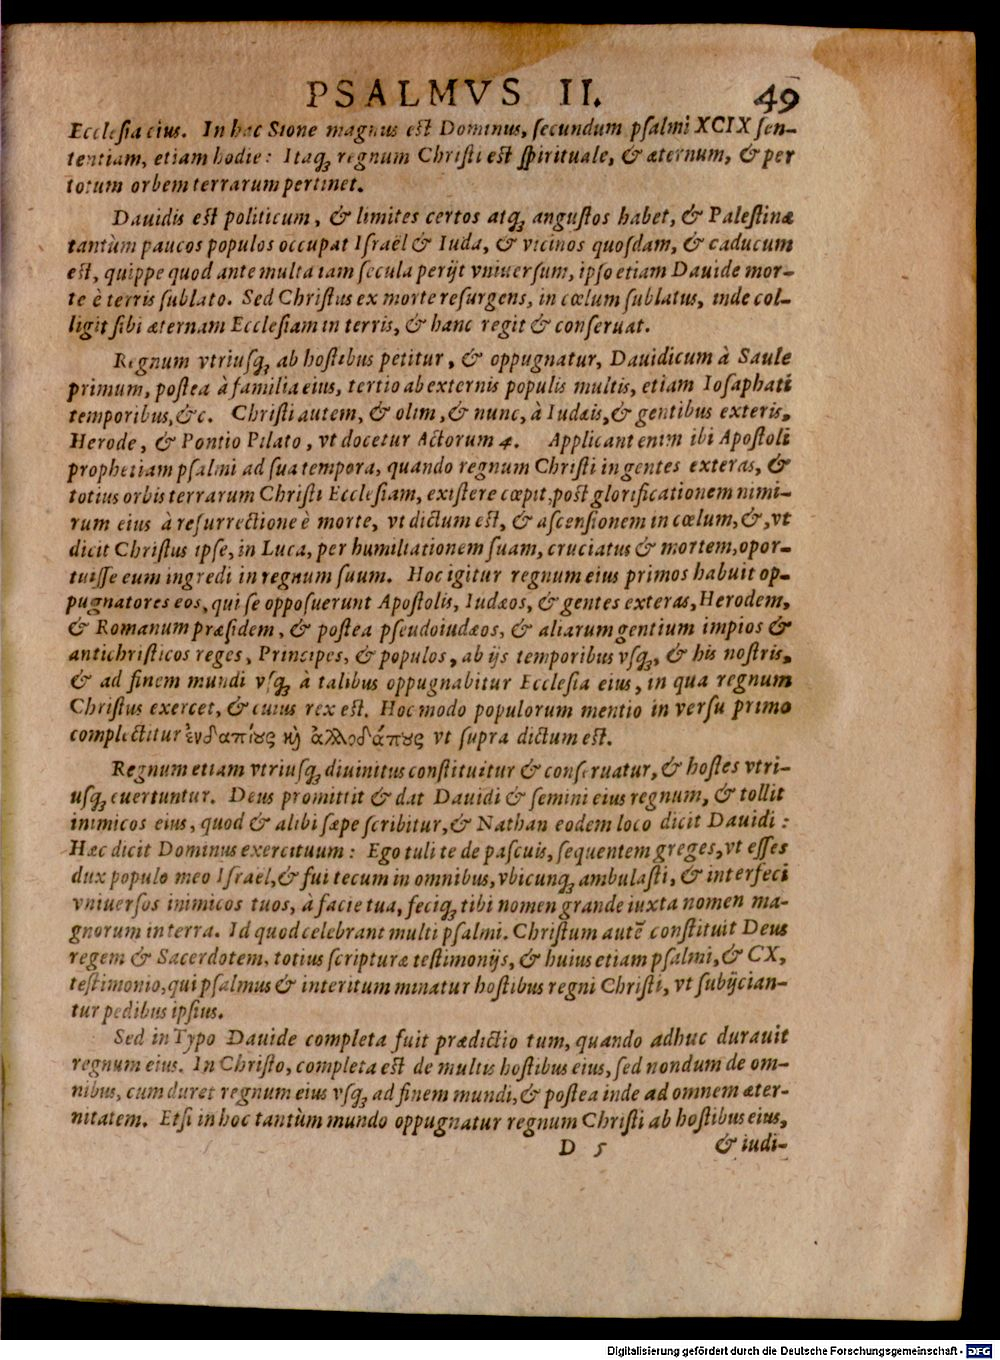 PSALMVS II. 49
Ecclesia eius. In hac Sione magnus est Dominus, secundum psalmi XCIX sen-
tentiam, etiam hodie: Itaqꝫ regnum Christi est spirituale, & æternum, & per
totum orbem terrarum pertinet.
Dauidis est politicum, & limites certos atqꝫ angustos habet, & Palestinæ
tantùm paucos populos occupat Israël & Iuda, & vicinos quosdam, & caducum
est, quippe quod ante multa iam secula perijt vniuersum, ipso etiam Dauide mor-
te è terris sublato. Sed Christus ex morte resurgens, in cœlum sublatus, inde col-
ligit sibi æternam Ecclesiam in terris, & hanc regit & conseruat.
Regnum vtriusqꝫ ab hostibus petitur, & oppugnatur, Dauidicum à Saule
primum, postea à familia eius, tertio ab externis populis multis, etiam Iosaphati
temporibus, &c. Christi autem, & olim, & nunc, à Iudæis, & gentibus exteris,
Herode, & Pontio Pilato, vt docetur Actorum 4. Applicant enim ibi Apostoli
prophetiam psalmi ad sua tempora, quando regnum Christi in gentes exteras, &
totius orbis terrarum Christi Ecclesiam, existere cœpit, post glorificationem nimi-
rum eius à resurrectione è morte, vt dictum est, & ascensionem in cœlum, &, vt
dicit Christus ipse, in Luca, per humiliationem suam, cruciatus & mortem, opor-
tuisse eum ingredi in regnum suum. Hoc igitur regnum eius primos habuit op-
pugnatores eos, qui se opposuerunt Apostolis, Iudæos, & gentes exteras, Herodem,
& Romanum præsidem, & postea pseudoiudæos, & aliarum gentium impios &
antichristicos reges, Principes, & populos, ab ijs temporibus vsqꝫ, & his nostris,
& ad finem mundi vsqꝫ à talibus oppugnabitur Ecclesia eius, in qua regnum
Christus exercet, & cuius rex est. Hoc modo populorum mentio in versu primo
complectitur ἐνδαπίους καὶ ἀλλοδάπους vt supra dictum est.
Regnum etiam vtriusqꝫ diuinitus constituitur & conseruatur, & hostes vtri-
usqꝫ euertuntur. Deus promittit & dat Dauidi & semini eius regnum, & tollit
inimicos eius, quod & alibi sæpe scribitur, & Nathan eodem loco dicit Dauidi:
Hæc dicit Dominus exercituum: Ego tuli te de pascuis, sequentem greges, vt esses
dux populo meo Israel, & fui tecum in omnibus, vbicunqꝫ ambulasti, & interfeci
vniuersos inimicos tuos, à facie tua, feciqꝫ tibi nomen grande iuxta nomen ma-
gnorum in terra. Id quod celebrant multi psalmi. Christum autē constituit Deus
regem & Sacerdotem, totius scripturæ testimonijs, & huius etiam psalmi, & CX,
testimonio, qui psalmus & interitum minatur hostibus regni Christi, vt subijcian-
tur pedibus ipsius.
Sed in Typo Dauide completa fuit prædictio tum, quando adhuc durauit
regnum eius. In Christo, completa est de multis hostibus eius, sed nondum de om-
nibus, cum duret regnum eius vsqꝫ ad finem mundi, & postea inde ad omnem æter-
nitatem. Etsi in hoc tantùm mundo oppugnatur regnum Christi ab hostibus eius,
D 5 & iudi-
Digitalisierung gefördert durch die Deutsche Forschungsgemeinschaft - DFG